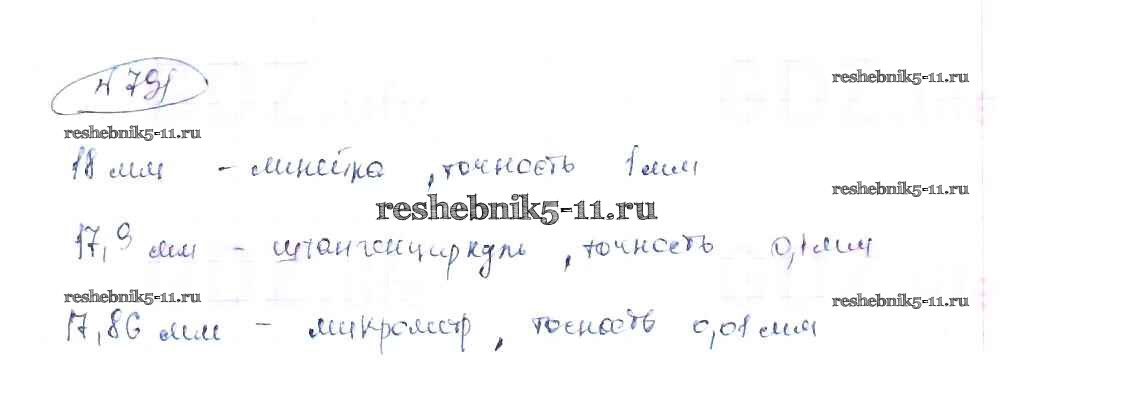 N 791
reshebnik5-11.ru
reshebnik5-11.ru
18 мм - линейка, точность 1 мм
reshebnik5-11.ru
reshebnik5-11.ru
17,9 мм - штангенциркуль, точность 0,1 мм
reshebnik5-11.ru
reshebnik5-11.ru
17,86 мм - микрометр, точность 0,01 мм